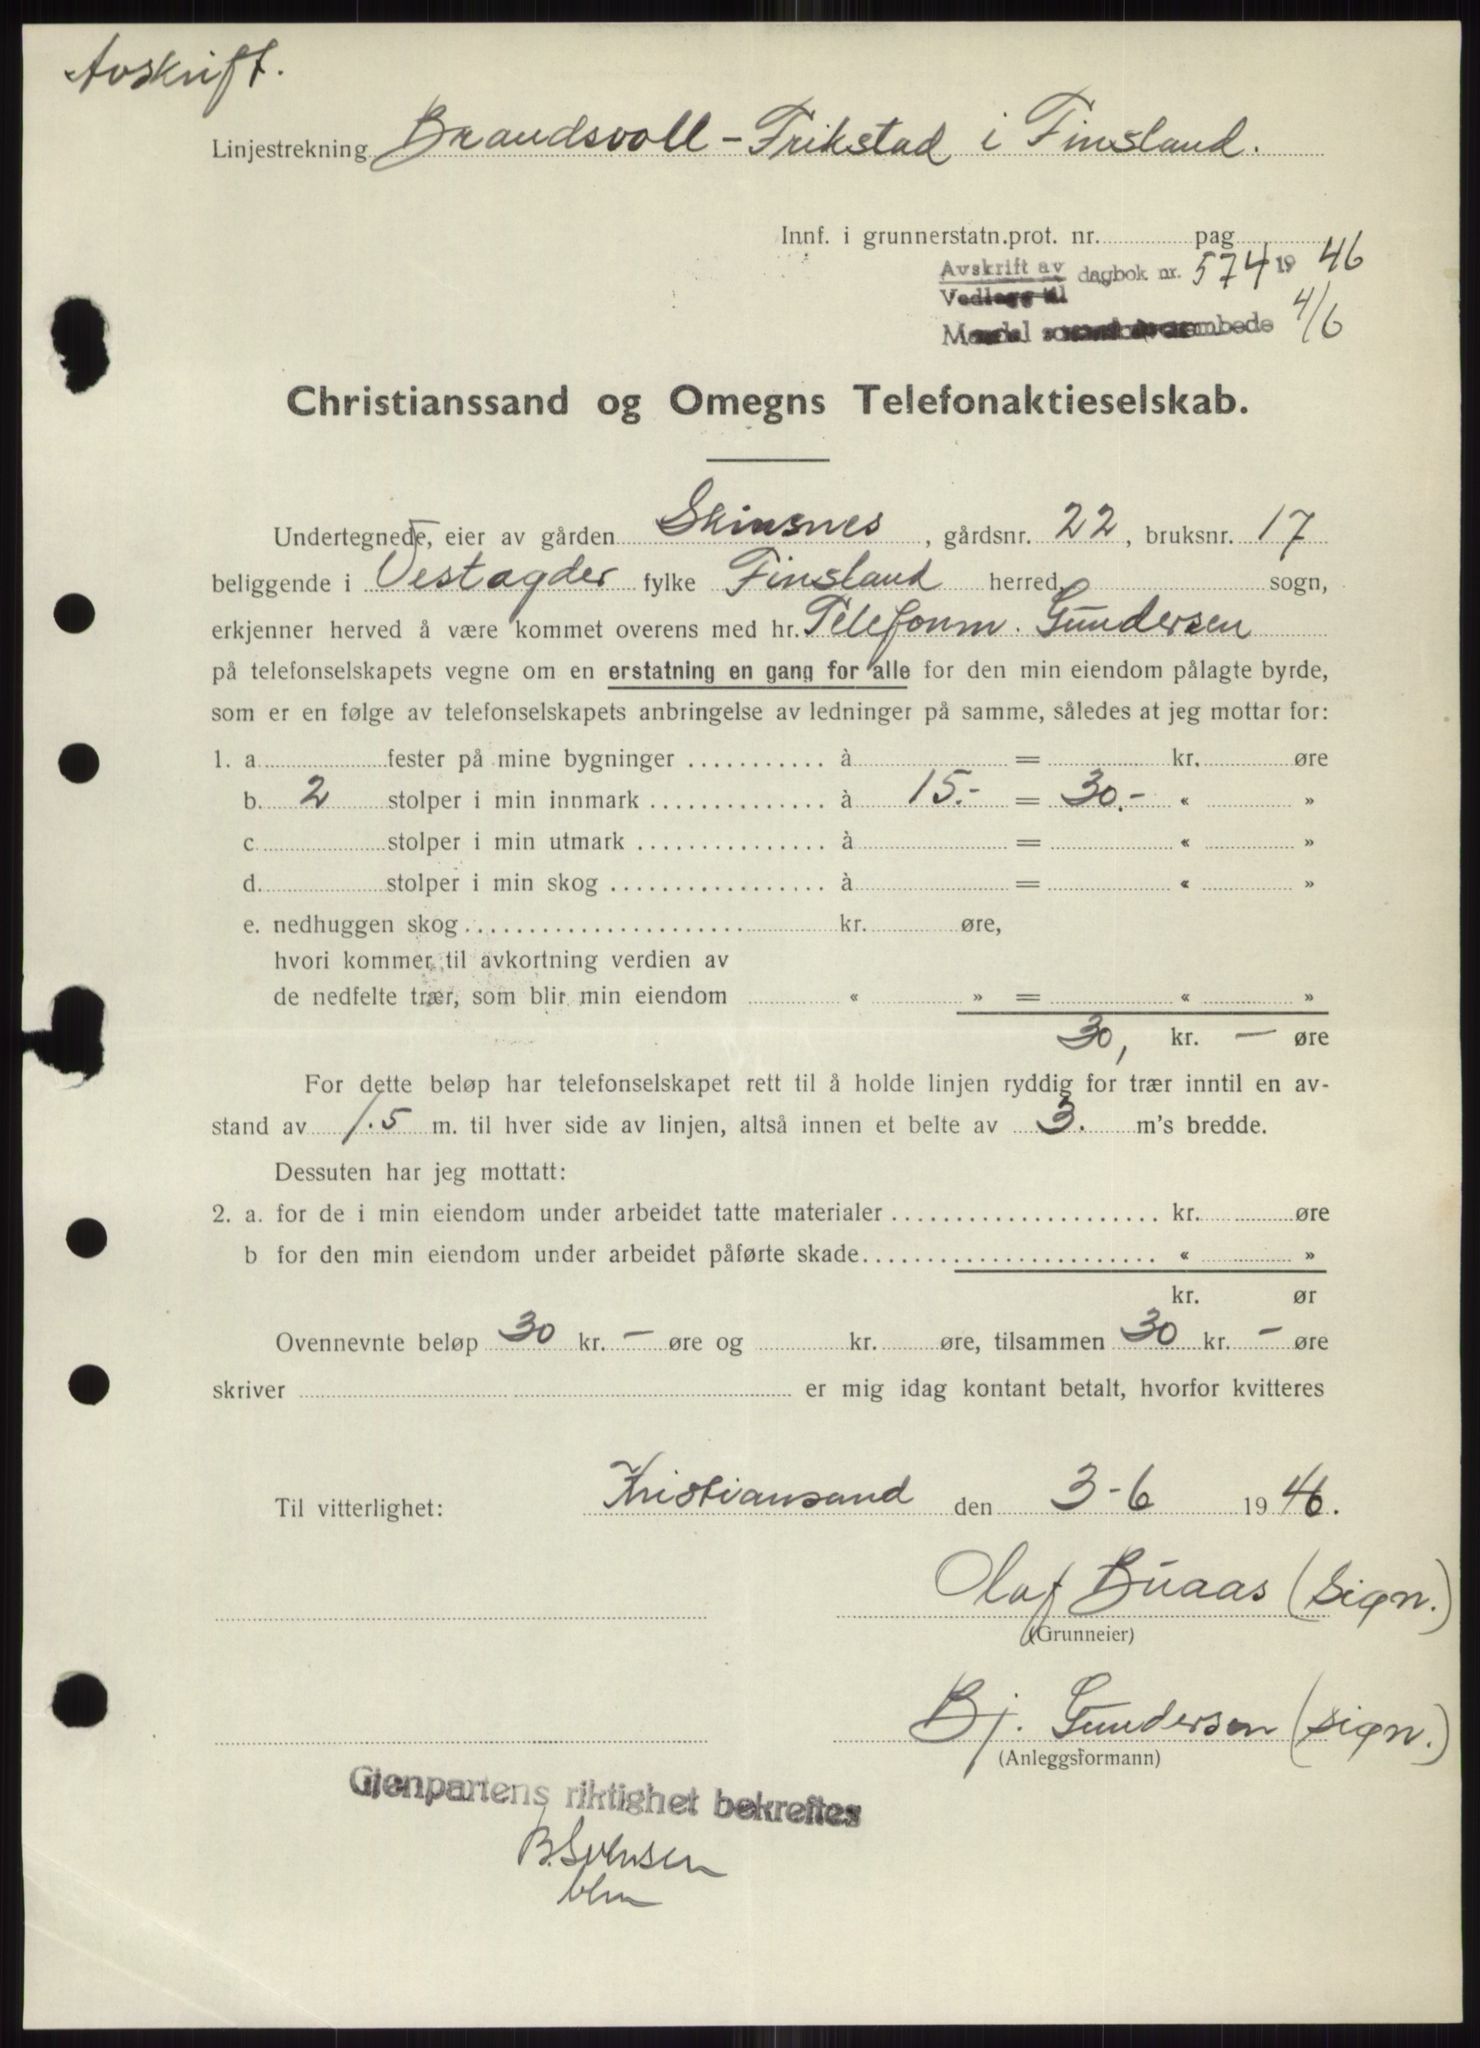 Avskrift.
Linjestrekning Brandsvoll - Frikstad i Finsland.
Innf. i grunnerstatn.prot. nr. pag
Avskrift av dagbok nr. 574 19 46
Vedlegg til 4/6
Mandal sorenskriverembede
Christianssand og Omegns Telefonaktieselskab.
Undertegnede, eier av gården Skinsnes, gårdsnr. 22, bruksnr. 17
beliggende i Vestagder fylke Finsland herred, sogn,
erkjenner herved å være kommet overens med hr. Telefonm. Gundersen
på telefonselskapets vegne om en erstatning en gang for alle for den min eiendom pålagte byrde,
som er en følge av telefonselskapets anbringelse av ledninger på samme, således at jeg mottar for:
1. a fester på mine bygninger à = kr. øre
b. 2 stolper i min innmark à 15.- = 30.- « »
c. stolper i min utmark à = « »
d. stolper i min skog à = « »
e. nedhuggen skog kr. øre,
hvori kommer til avkortning verdien av
de nedfelte trær, som blir min eiendom « » = « »
30, kr. — øre
For dette beløp har telefonselskapet rett til å holde linjen ryddig for trær inntil en av-
stand av 1.5 m. til hver side av linjen, altså innen et belte av 3. m's bredde.
Dessuten har jeg mottatt:
2. a. for de i min eiendom under arbeidet tatte materialer kr. øre
b for den min eiendom under arbeidet påførte skade « »
kr. ør
Ovennevnte beløp 30 kr. — øre og kr. øre, tilsammen 30 kr. — øre
skriver er mig idag kontant betalt, hvorfor kvitteres
Til vitterlighet: Kristiansand den 3-6 1946.
Olaf Buaas (sign.)
(Grunneier)
Bj. Gundersen (sign.)
(Anleggsformann)
Gjenpartens riktighet bekreftes